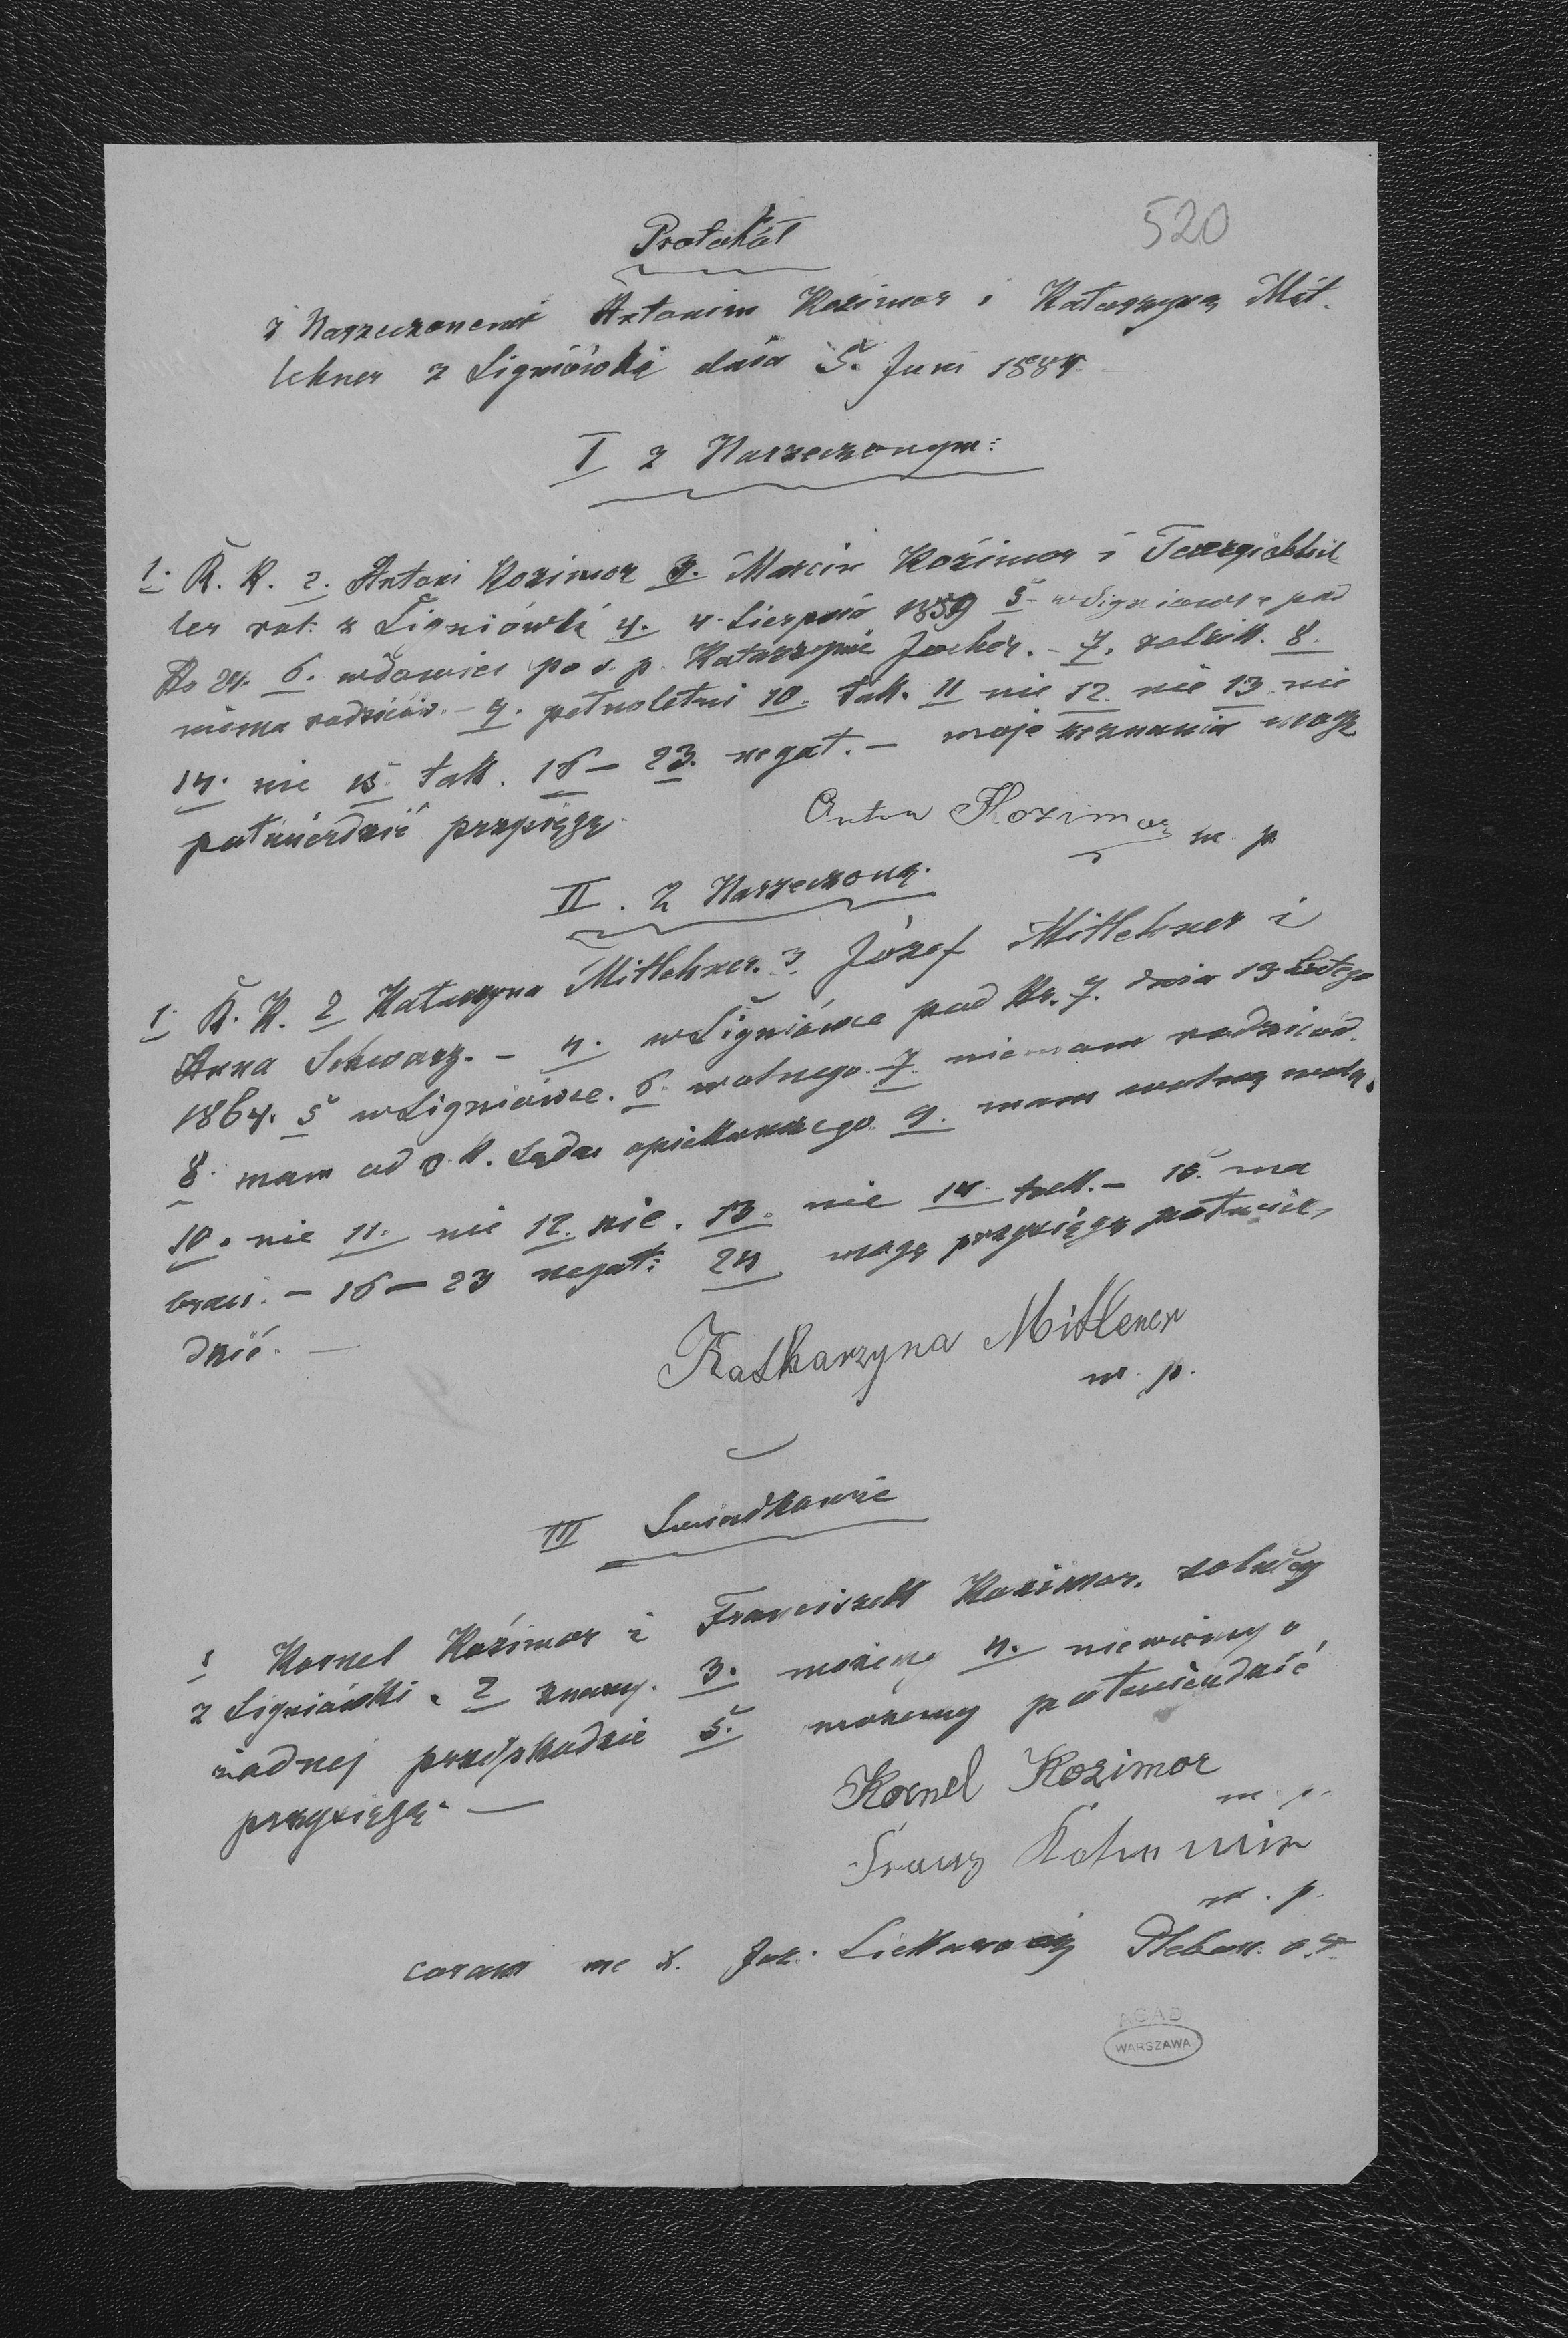 Protokół
520
z Narzeczonemi Antonim Kozimor i Katarzyną Mit-
lehner z Ligniówki dnia 5. Juni 1884.
I z Narzeczonym:
1. R. K. 2. Antoni Kozimor 3. Marcin Kozimor i
ler rol. z Ligniówki 4. 4. Sierpnia 1859 5. w Ligniowce pod
No 24. 6. wdowiec po ś. p. Katarzynie Jocher. – 7. rolnik. 8.
niema rodziców. – 9. pełnoletni 10. tak. 11 nie 12. nie 13. nie
14. nie 15 tak. 16 – 23. negat. – moje zeznania mogę
potwierdzić przysięgą.
Anton Kozimor m. p.
II. Z Narzeczoną.
1. R. K. 2 Katarzyna Mitlehner. 3 Józef Mitlehner i
Anna Schwarz. – 4. w Ligniówce pod Nr. 7. dnia 13 Lutego
1864. 5 w Ligniówce. 6 wolnego. 7. niemam rodziców.
8. mam od c. k. Sądu opiekunczego. 9. mam wolną wolę.
10. nie 11. nie 12. nie. 13. nie 14. tak. – 15. ma
braci. – 16 – 23 negat: 24 mogę przysięgą potwier-
dzić. –
Katharzyna Mitlener
m. p.
III Swiadkowie
1 Kornel Kozimor i Franciszek Kozimor. rolnicy
z Ligniówki. 2 znamy. 3. możemy 4. niewiemy o
żadnej przeszkodzie 5. możemy potwierdzić
przysięgą. –
Kornel Kozimor
m. p.
Franz
m. p.
coram me X. Jak. Pleban. o. ł.
AGAD
WARSZAWA